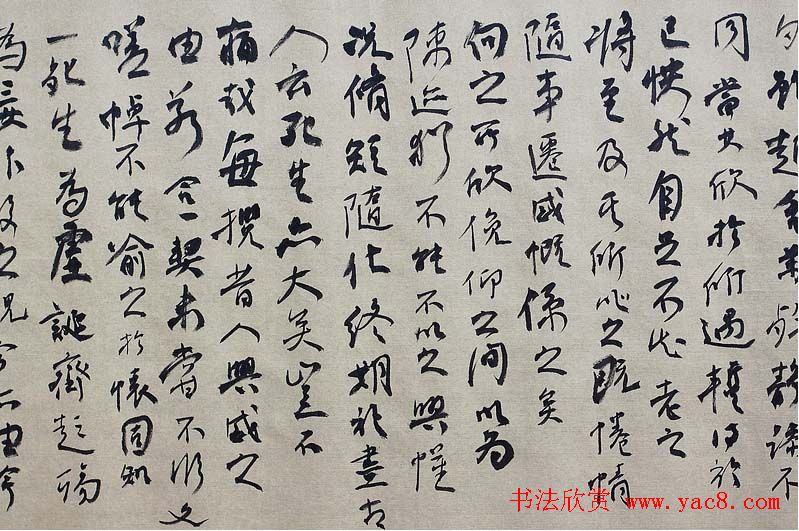 雖趣舍萬殊靜躁不
同當其欣於所遇輒得於
己怏然自足不知老之
將至及其所之既惓情
隨事遷感慨係之矣
向之所欣俛仰之間以為
陳迹猶不能不以之興懷
況脩短隨化終期於盡古
人云死生亦大矣豈不
痛哉每攬昔人興感之
由若合一契未嘗不臨文
嗟悼不能喻之於懷固知
一死生為虛誕齊彭殤
為妄作後之視今亦由今
书法欣赏 www.yac8.com